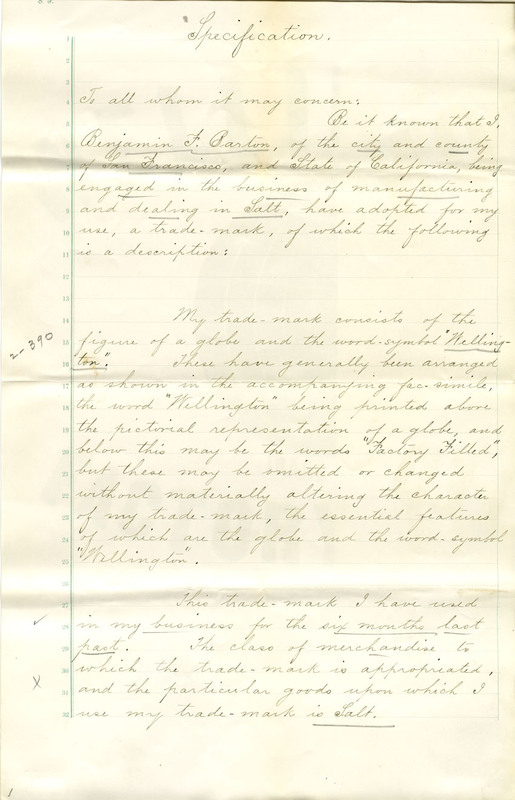 Specification.
To all whom it may concern:
Be it known that I,
Benjamin F. Barton, of the city and county
of San Francisco, and State of California, being
engaged in the business of manufacturing
and dealing in Salt, have adopted for my
use, a trade-mark, of which the following
is a description:
My trade-mark consists of the
figure of a globe and the word-symbol "Welling-
ton". These have generally been arranged
as shown in the accompanying fac-simile,
the word "Wellington" being printed above
the pictorial representation of a globe, and
below this may be the words "Factory Filled",
but these may be omitted or changed
without materially altering the character
of my trade-mark, the essential features
of which are the globe and the word-symbol
"Wellington".
This trade-mark I have used
in my business for the six months last
past. The class of merchandise to
which the trade-mark is appropriated,
and the particular goods upon which I
use my trade-mark is Salt.
2-390
1
2
3
4
5
6
7
8
9
10
11
12
13
14
15
16
17
18
19
20
21
22
23
24
25
26
27
28
29
30
31
32